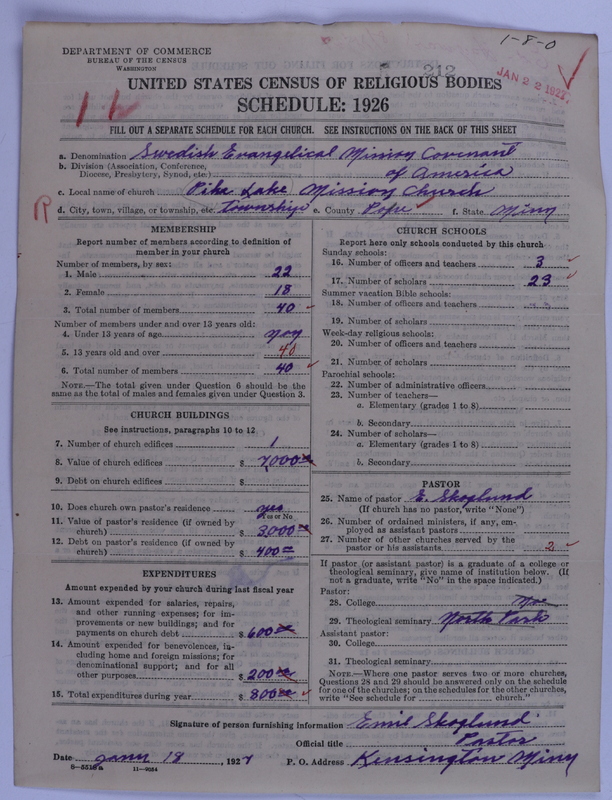 1-8-0
DEPARTMENT OF COMMERCE
BUREAU OF THE CENSUS
WASHINGTON
212
JAN 22 1927
UNITED STATES CENSUS OF RELIGIOUS BODIES
SCHEDULE: 1926
FILL OUT A SEPARATE SCHEDULE FOR EACH CHURCH. SEE INSTRUCTIONS ON THE BACK OF THIS SHEET
a. Denomination Swedish Evangelical Mission Covenant
b. Division (Association, Conference,
Diocese, Presbytery, Synod, etc.) of America
c. Local name of church Pike Lake Mission Church
R
d. City, town, village, or township, etc. township e. County Pope f. State Minn
MEMBERSHIP
Report number of members according to definition of
member in your church
Number of members, by sex:
1. Male 22
2. Female 18
3. Total number of members 40
Number of members under and over 13 years old:
4. Under 13 years of age non
5. 13 years old and over 40
6. Total number of members 40
NOTE.—The total given under Question 6 should be the
same as the total of males and females given under Question 3.
CHURCH BUILDINGS
See instructions, paragraphs 10 to 12
7. Number of church edifices 1
8. Value of church edifices $ 7000
9. Debt on church edifices $
10. Does church own pastor's residence yes
Yes or No
11. Value of pastor's residence (if owned by
church) $ 3,000
12. Debt on pastor's residence (if owned by
church) $ 400
EXPENDITURES
Amount expended by your church during last fiscal year
13. Amount expended for salaries, repairs,
and other running expenses; for im-
provements or new buildings; and for
payments on church debt $ 600
14. Amount expended for benevolences, in-
cluding home and foreign missions; for
denominational support; and for all
other purposes $ 200
15. Total expenditures during year $ 800
CHURCH SCHOOLS
Report here only schools conducted by this church
Sunday schools:
16. Number of officers and teachers 3
17. Number of scholars 23
Summer vacation Bible schools:
18. Number of officers and teachers
19. Number of scholars
Week-day religious schools:
20. Number of officers and teachers
21. Number of scholars
Parochial schools:
22. Number of administrative officers
23. Number of teachers—
a. Elementary (grades 1 to 8)
b. Secondary
24. Number of scholars—
a. Elementary (grades 1 to 8)
b. Secondary
PASTOR
25. Name of pastor E. Skoglund
(If church has no pastor, write "None")
26. Number of ordained ministers, if any, em-
ployed as assistant pastors
27. Number of other churches served by the
pastor or his assistants 2
If pastor (or assistant pastor) is a graduate of a college or
theological seminary, give name of institution below. (If
not a graduate, write "No" in the space indicated.)
Pastor:
28. College
29. Theological seminary North Park
Assistant pastor:
30. College
31. Theological seminary
NOTE.—Where one pastor serves two or more churches,
Questions 28 and 29 should be answered only on the schedule
for one of the churches; on the schedules for the other churches,
write "See schedule for church."
Signature of person furnishing information Emil Skoglund
Official title Pastor
Date Janu 18, 1927 P. O. Address Kensington Minn
8-5518a 11-9054